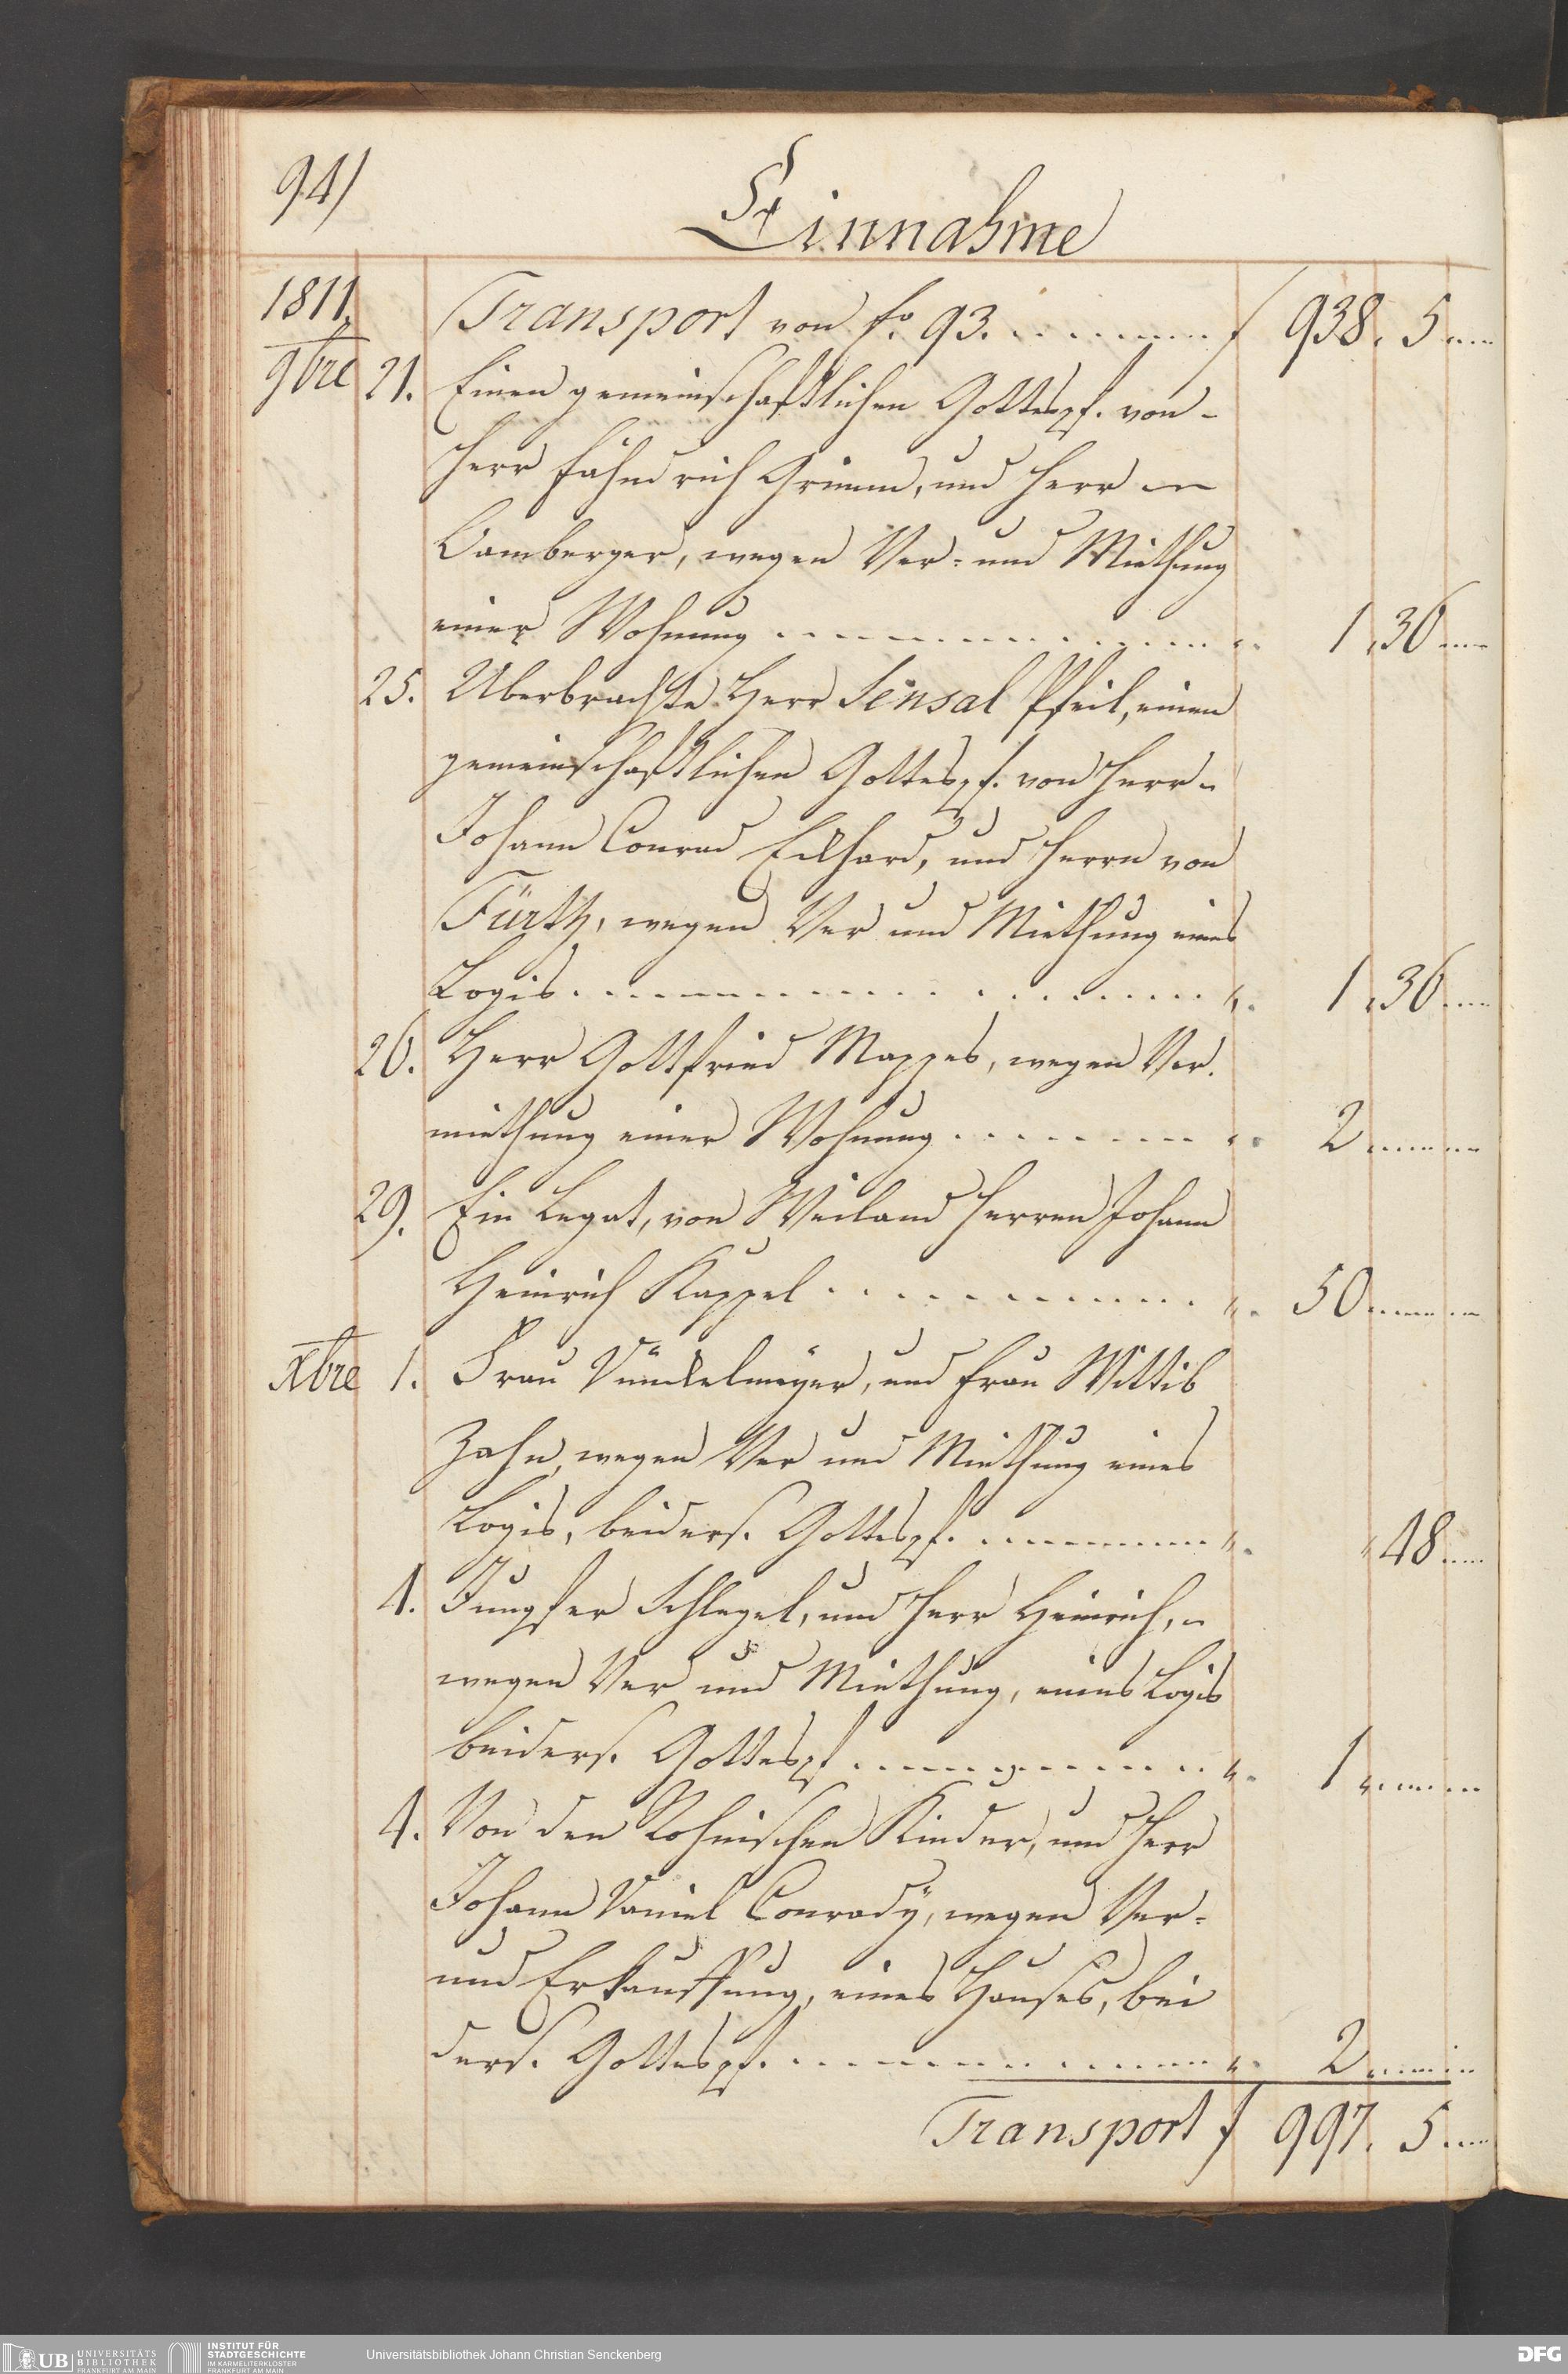 94/
Einnahme
1811.
Transport von fo. 93. f 938. 5
9bre 21. Einen gemeinschaftlichen Gottespf. von
Herr Fähndrich Grimm, und Herr
Bamberger, wegen Ver- und Miethung
einer Wohnung 1. 36
25. Uberbrachte Herr Sensal Pfeil, einen
gemeinschaftlichen Gottespf. von Herr
Johann Conrad Eckhard, und Herrn von
Fürth, wegen Ver und Miethung eines
Logis 1. 36
26. Herr Gottfried Mappes, wegen Ver-
miethung einer Wohnung 2
29. Ein Legat, von Weiland Herren Johann
Heinrich Kappel 50
Xbre 1. Frau Dünckelmeyer, und Frau Wittib
Zahn, wegen Ver und Miethung eines
Logis, beiders. Gottespf. 48
4. Jungfer Schlegel, und Herr Heinrich,
wegen Ver und Miethung, eines Logis
beiders. Gottespf 1
4. Von den Rohnischen Kinder, und Herr
Johann Daniel Conrady, wegen Ver-
und Erkauffung, eines Hauses, bei
ders. Gottespf. 2
Transport f 997. 5
UB UNIVERSITÄTS BIBLIOTHEK FRANKFURT AM MAIN
INSTITUT FÜR STADTGESCHICHTE IM KARMELITERKLOSTER FRANKFURT AM MAIN
Universitätsbibliothek Johann Christian Senckenberg
DFG